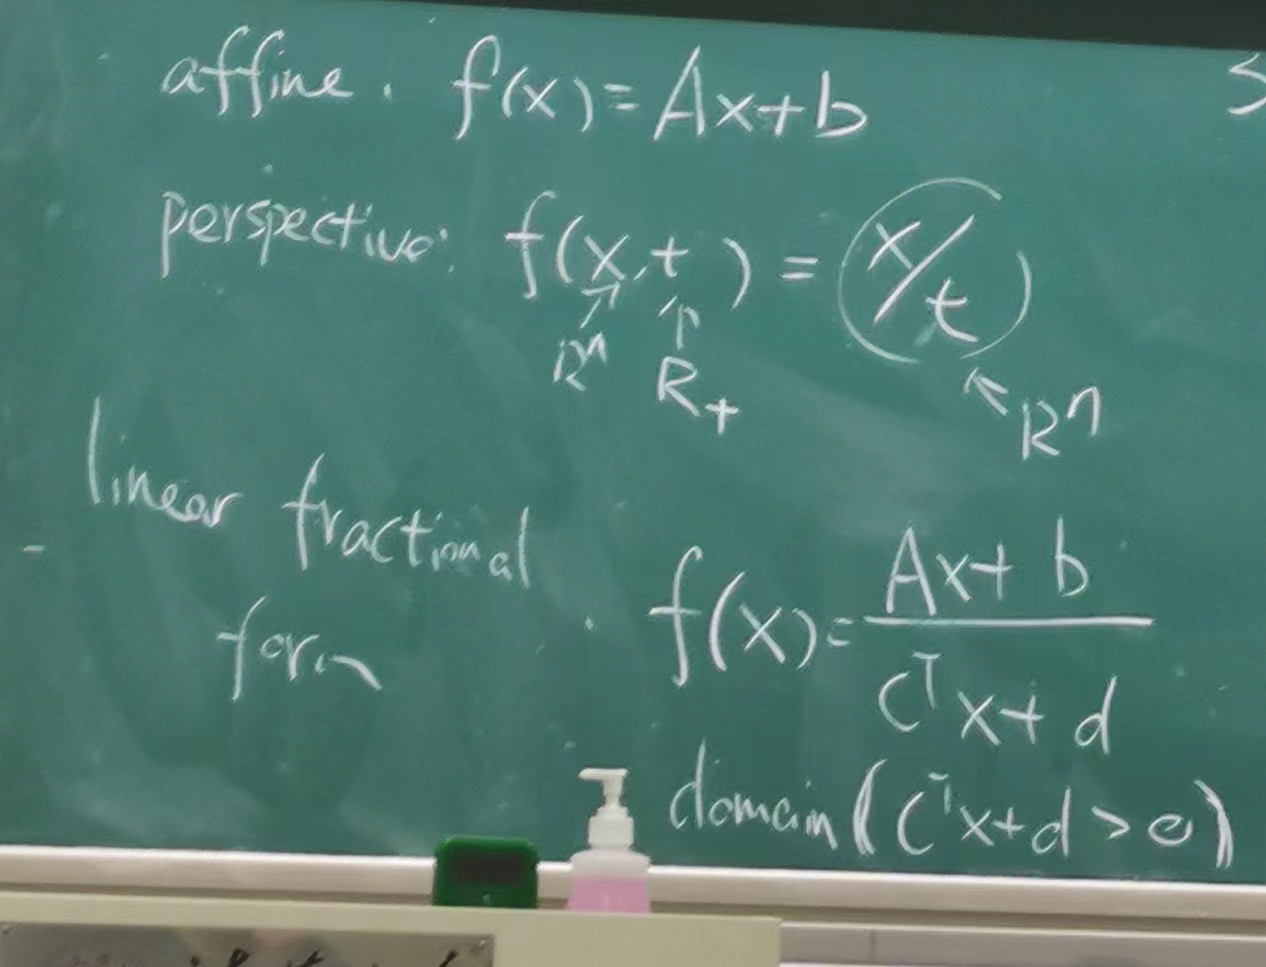 affine. f(x)=Ax+b
perspective: f(x,t) = x/t
Rⁿ R₊ Rⁿ
linear fractional
form
f(x)= Ax+b
Cᵀx+d
domain (Cᵀx+d>0)